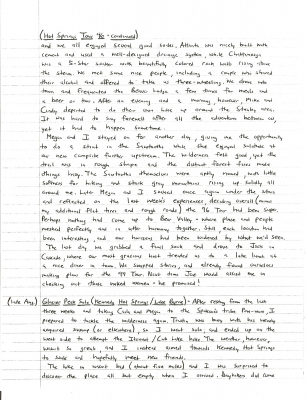 (Hot Springs Tour '96 - continued)
and we all enjoyed several good soaks. Attack was nicely built with
cement and used a well-designed drainage system, while Challenger
was a 5-star soaker with beautifully colored rock walls rising above
the steam. We met some nice people, including a couple who shared
their alcohol and offered to take us three-wheeling. We drove into
town and frequented the Lodge a few times for meals and
a beer or two. After an evening and a morning, however, Mike and
Cindy departed to do their own soaks up around the Stanley area.
It was hard to say farewell after all the adventures between us,
yet it had to happen sometime.
Megan and I stayed on for another day, giving me the opportunity
to do a stint in the Sawtooths while she enjoyed solitude at
our new campsite further upstream. The wilderness felt good, yet the
trail was in rough shape and the distant forest fires made
things hazy. The Sawtooths themselves were aptly named, with little
softness for hiking and stark gray mountains rising up boldly all
around me. Later Megan and I soaked once again under the stars
and reflected on the last week's experiences, deciding overall (minus
my additional flat tires and rough roads) the '96 Tour had been super.
Perhaps nothing had come up to Bear Valley - where place and people
meshed perfectly and in utter harmony together. Still, each location had
been interesting, and our horizons had been widened by what we'd seen.
The last day we grabbed a final soak and drove to Jack in
where our most gracious host treated us to a late lunch at
a nice diner in town. We swapped stories, and already found ourselves
making plans for the '97 Tour. Next time Jack would assist me in
checking out those naked women - he promised!
(Late Aug.) Glacier Peak Solo (Kennedy Hot Springs / Lake Byrne) - After resting from the last
three weeks and taking Cindy and Megan to the Spokane train, I
prepared to tackle the wilderness again. Truth was busy with his newly
acquired (or elsewhere), so I went solo, and ended up on the
west side to attempt the Illabot / Cub Lake hike. The weather, however,
wasn't so great and I instead aimed towards Kennedy Hot Springs
to soak and hopefully meet new friends.
The hike in wasn't bad (about five miles) and I was surprised to
discover the place all but empty when I arrived. Daylighters did come